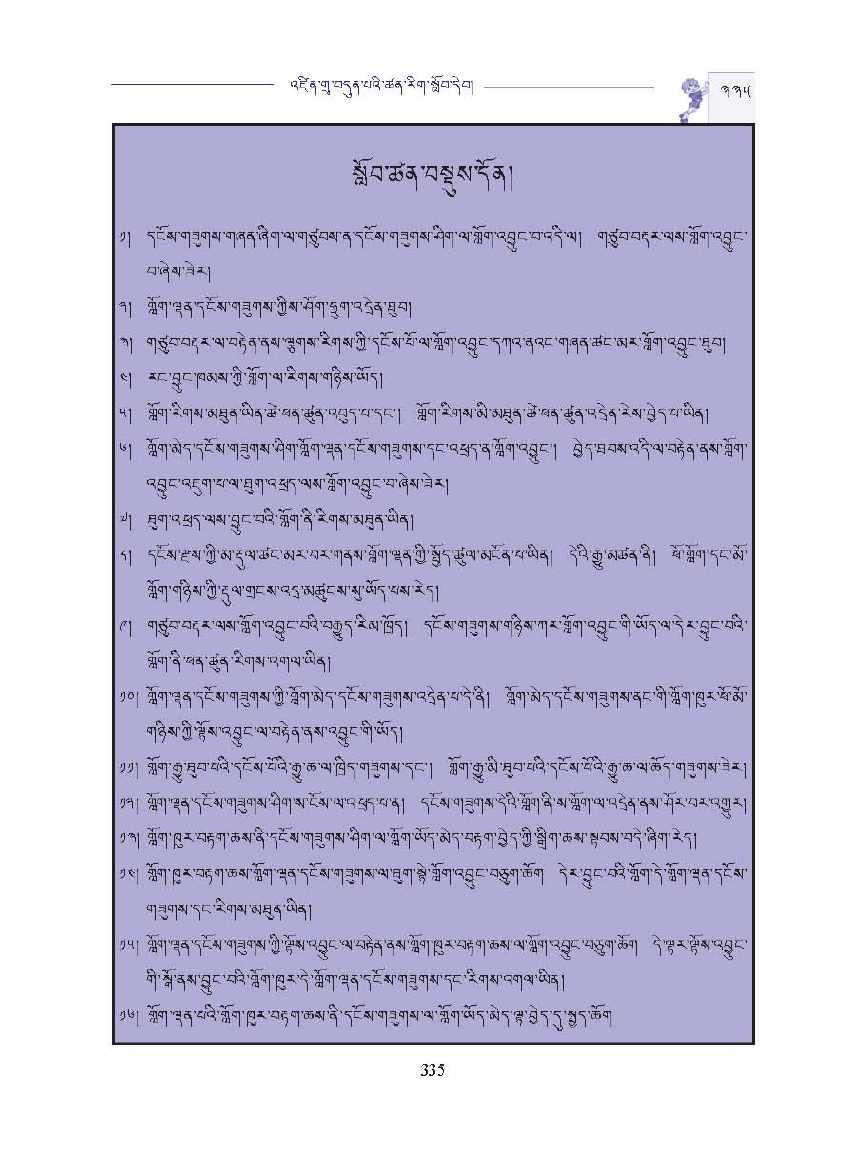 འཛིན་གྲྭ་བདུན་པའི་ཚན་རིག་སློབ་དེབ།
༣༣༥
སློབ་ཚན་བསྡུས་དོན།
༡། དངོས་གཟུགས་གཞན་ཞིག་ལ་གཙུབས་ན་དངོས་གཟུགས་ཤིག་ལ་གློག་འབྱུང་བ་འདི་ལ། གཙུབ་བརྡར་ལས་གློག་འབྱུང་
བ་ཞེས་ཟེར།
༢། གློག་ལྡན་དངོས་གཟུགས་ཀྱིས་ཤོག་ཧྲུག་འདྲེན་ཐུབ།
༣། གཙུབ་བརྡར་ལ་བརྟེན་ནས་ལྕགས་རིགས་ཀྱི་དངོས་པོ་ལ་གློག་འབྱུང་དཀའ་ནའང་གཞན་ཚང་མར་གློག་འབྱུང་ཐུབ།
༤། རང་བྱུང་ཁམས་ཀྱི་གློག་ལ་རིགས་གཉིས་ཡོད།
༥། གློག་རིགས་མཐུན་ཡིན་ཚེ་ཕན་ཚུན་འབུད་པ་དང་། གློག་རིགས་མི་མཐུན་ཚེ་ཕན་ཚུན་འདྲེན་རེས་བྱེད་པ་ཡིན།
༦། གློག་མེད་དངོས་གཟུགས་ཤིག་གློག་ལྡན་དངོས་གཟུགས་དང་འཕྲད་ན་གློག་འབྱུང་། བྱེད་ཐབས་འདི་ལ་བརྟེན་ནས་གློག་
འབྱུང་འཇུག་པ་ལ་ཐུག་འཕྲད་ལས་གློག་འབྱུང་བ་ཞེས་ཟེར།
༧། ཐུག་འཕྲད་ལས་བྱུང་བའི་གློག་ནི་རིགས་མཐུན་ཡིན།
༨། དངོས་རྫས་ཀྱི་མ་རྡུལ་ཚང་མར་བར་གནས་གློག་ལྡན་ཀྱི་སྤྱོད་ཚུལ་མངོན་པ་ཡིན། དེའི་རྒྱུ་མཚན་ནི། ཕོ་གློག་དང་མོ་
གློག་གཉིས་ཀྱི་རྡུལ་གྲངས་འདྲ་མཚུངས་སུ་ཡོད་པས་རེད།
༩། གཙུབ་བརྡར་ལས་གློག་འབྱུང་བའི་བརྒྱུད་རིམ་ཁྲོད། དངོས་གཟུགས་གཉིས་ཀར་གློག་འབྱུང་གི་ཡོད་ལ་དེར་བྱུང་བའི་
གློག་ནི་ཕན་ཚུན་རིགས་འགལ་ཡིན།
༡༠། གློག་ལྡན་དངོས་གཟུགས་ཀྱི་གློག་མེད་དངོས་གཟུགས་འདྲེན་པ་དེ་ནི། གློག་མེད་དངོས་གཟུགས་ནང་གི་གློག་ཁུར་ཕོ་མོ་
གཉིས་ཀྱི་ལྟོས་འབྱུང་ལ་བརྟེན་ནས་འབྱུང་གི་ཡོད།
༡༡། གློག་རྒྱུ་ཐུབ་པའི་དངོས་པོའི་རྒྱུ་ཆ་ལ་ཁྲིད་གཟུགས་དང་། གློག་རྒྱུ་མི་ཐུབ་པའི་དངོས་པོའི་རྒྱུ་ཆ་ལ་ཆོད་གཟུགས་ཟེར།
༡༢། གློག་ལྡན་དངོས་གཟུགས་ཤིག་ས་ངོས་ལ་འཕྲད་པ་ན། དངོས་གཟུགས་དེའི་གློག་ནི་ས་གློག་ལ་འདྲེན་ནས་ཤོར་བར་འགྱུར།
༡༣། གློག་ཁུར་བརྟག་ཆས་ནི་དངོས་གཟུགས་ཤིག་ལ་གློག་ཡོད་མེད་བརྟག་བྱེད་ཀྱི་སྒྲིག་ཆས་སྟབས་བདེ་ཞིག་རེད།
༡༤། གློག་ཁུར་བརྟག་ཆས་གློག་ལྡན་དངོས་གཟུགས་ལ་ཐུག་སྟེ་གློག་འབྱུང་བཅུག་ཆོག དེར་བྱུང་བའི་གློག་དེ་གློག་ལྡན་དངོས་
གཟུགས་དང་རིགས་མཐུན་ཡིན།
༡༥། གློག་ལྡན་དངོས་གཟུགས་ཀྱི་ལྟོས་འབྱུང་ལ་བརྟེན་ནས་གློག་ཁུར་བརྟག་ཆས་ལ་གློག་འབྱུང་བཅུག་ཆོག དེ་ལྟར་ལྟོས་འབྱུང་
གི་སྒོ་ནས་བྱུང་བའི་གློག་ཁུར་དེ་གློག་ལྡན་དངོས་གཟུགས་དང་རིགས་འགལ་ཡིན།
༡༦། གློག་ལྡན་པའི་གློག་ཁུར་བརྟག་ཆས་ནི་དངོས་གཟུགས་ལ་གློག་ཡོད་མེད་ལྟ་བྱེད་དུ་སྤྱད་ཆོག
335